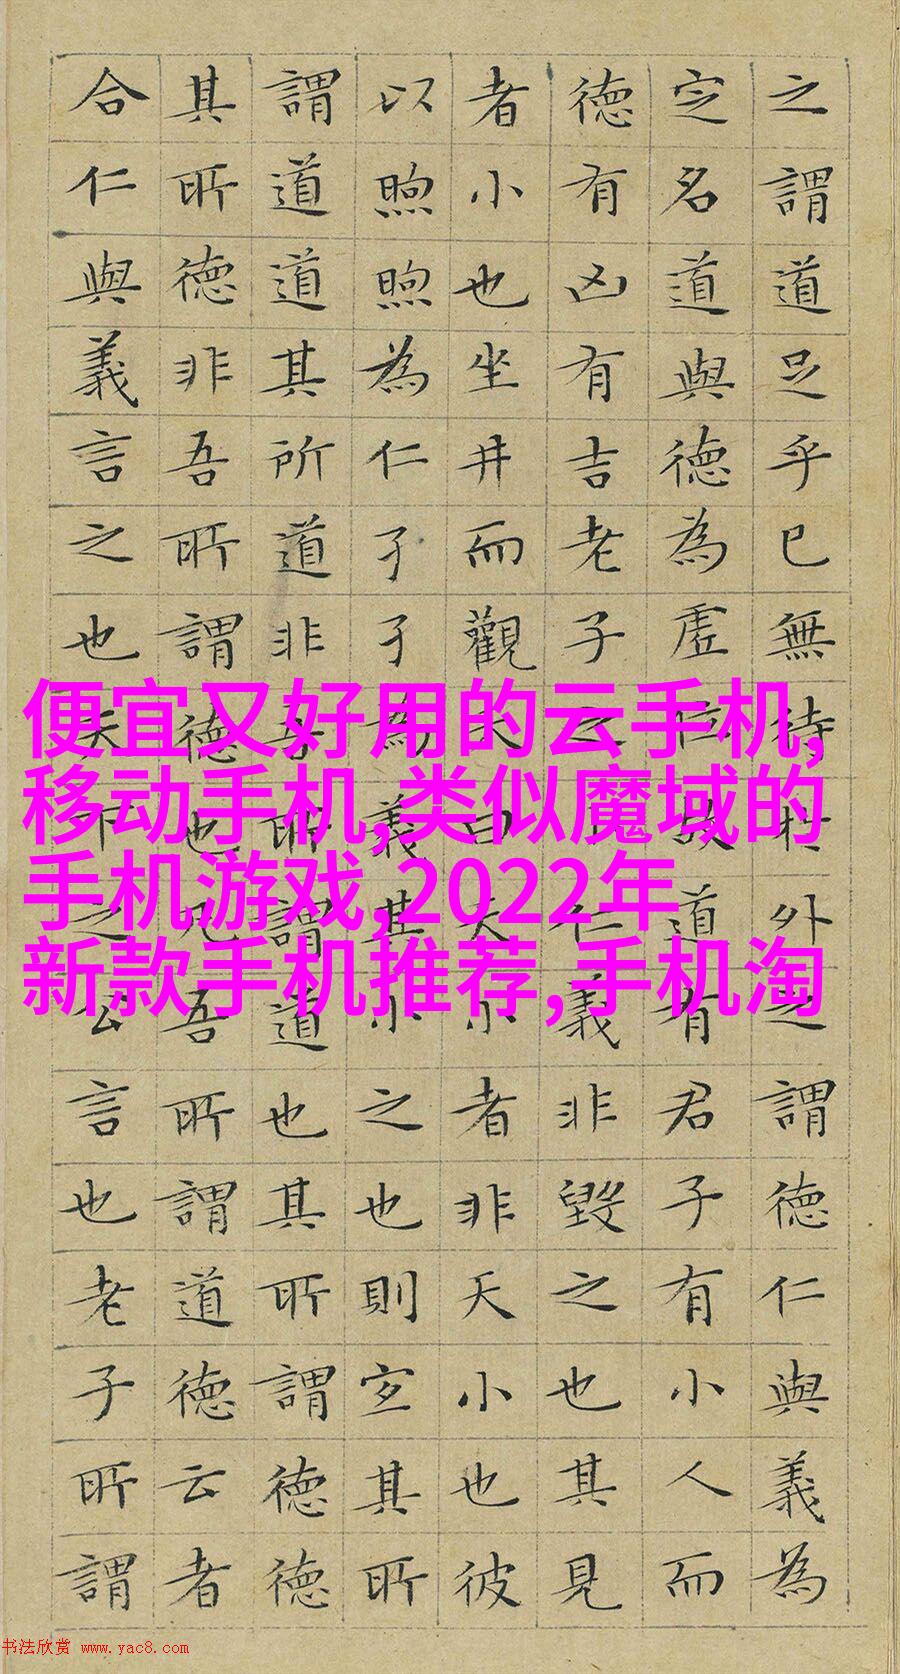 之謂道足乎已無待於外之謂德仁與義為
定名道與德為虛位故道有君子有小人而
德有凶有吉老子之小仁義非毀之也其見
者小也坐井而觀天曰天小者非天小也彼
以煦煦為仁孑孑為義其小之也則宜其所
謂道道其所道非吾所謂道也其所謂德德
其所德非吾所謂德也凡吾所謂道德云者
合仁與義言之也天下之公言也老子所謂
便宜又好用的云手机,
移动手机,类似魔域的
手机游戏,2022年
新款手机推荐,手机淘
书法欣赏 www.yac8.com